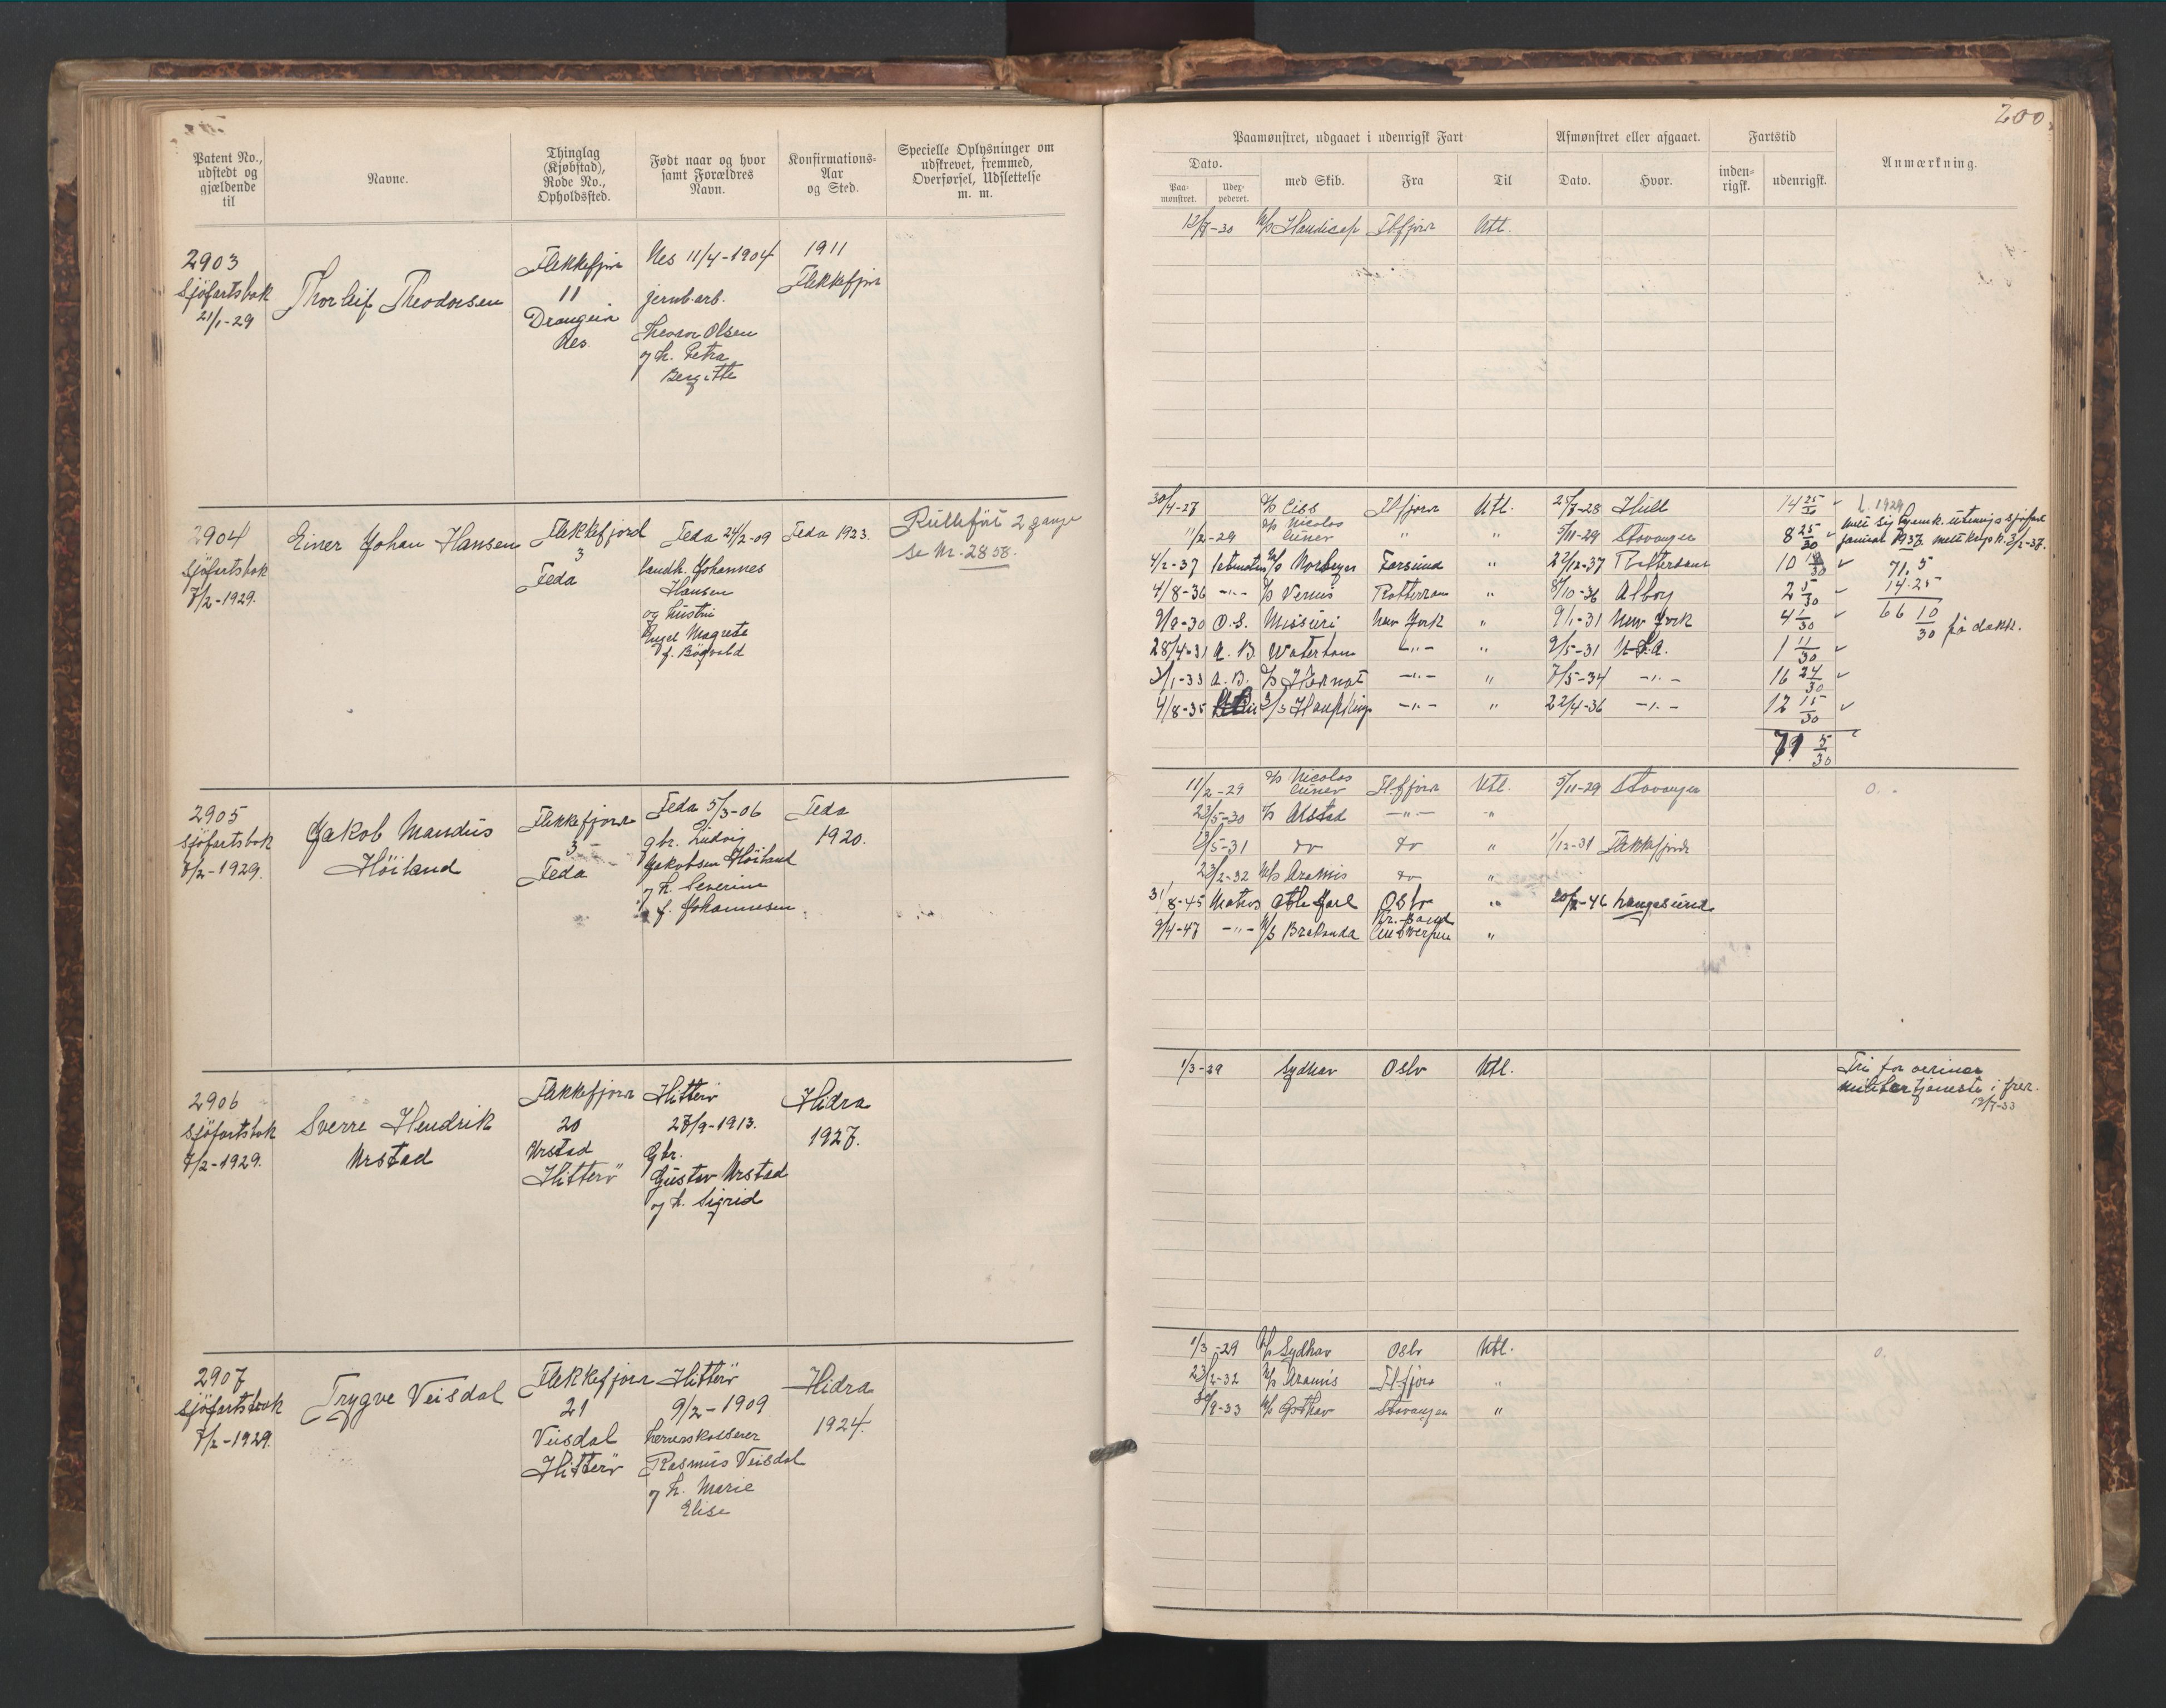 200.
Patent No., udstedt og gjældende til
Navne.
Thinglag (Kjøbstad), Rode No., Opholdssted.
Født naar og hvor samt Forældres Navn.
Konfirmations-Aar og Sted.
Specielle Oplysninger om udskrevet, fremmed, Overførsel, Udslettelse m. m.
Paamønstret, udgaaet i udenrigsk Fart
Dato.
Paa-mønstret.
Udex-pederet.
med Skib.
Fra
Til
Afmønstret eller afgaaet.
Dato.
Hvor.
Fartstid
inden-rigsk.
udenrigsk.
Anmærkning.
2903
Sjöfartsbok
21/1-29
Thorleif Theodorsen
Flekkefjor
11
Drangein
Nes.
Nes 11/4-1904
jernb.arb.
Theodor Olsen
og h. Petra
Bergitte
1911
Flekkefjor
12/7-30 M/S Handicap Flfjord Utl.
2904
Sjöfartsbok
7/2-1929.
Einer Johan Hansen
Flekkefjord
3
Feda
Feda 24/2-09
Landh. Johannes
Hansen
og hustru
Magrete
f. Bögvald
Feda 1923.
Rulleført 2 gange
se Nr. 2858.
30/4-27 D/S Ciss Flfjord Utl. 25/7-28 Hull 14 25/30
11/2-29 D/S Nicolos Cuner " " 5/11-29 Stavanger 8 25/30
4/2-37 M/S Norbryn Farsund " 22/12-37 Rotterdam 10 18/30
4/8-36 -"- D/S Venus Rotterdam " 8/10-36 Albog 2 5/30
9/9-30 O.S. Missuri New York " 9/1-31 New York 4 1/30
28/4-31 A.B. Waterham -"- " 9/5-31 U.S.A. 1 11/30
3/1-33 A.B. -"- " 7/5-34 -"- 16 24/30
9/8-35 -"- " 22/4-36 -"- 12 15/30
71 5/30
1929
januar 1937. 3/2-37.
71.5
14.25
66 10/30 på dekk.
2905
Sjöfartsbok
7/2-1929.
Jakob Mandius
Höiland
Flekkefjord
3
Feda
Feda 5/3-06
gbr. Ludvig
Jakobsen Höiland
og h. Severine
f. Johannesen
Feda
1920.
11/2-29 D/S Nicolos Cuner Flfjord Utl. 5/11-29 Stavanger
23/5-30 D/S Alstad -"- -"
13/5-31 do do " 1/12-31 Flekkefjord
23/2-32 M/S Aramis do "
31/8-45 Matros Ole Jarl Oslo " 20/2-46 haugesund
9/4-47 -"- M/S Brakanda Kr.sand Antwerpen "
0.
2906
Sjöfartsbok
7/2-1929.
Sverre Hendrik
Urstad
Flekkefjord
20
Urstad
Hitterö
Hitterö
27/9-1913.
Gbr.
Gustav Urstad
og h. Sigrid
Hidra
1927.
1/3-29 Sydhav Oslo Utl.
Fri for ordinær
militærtjeneste i fred.
12/7-33
2907
Sjöfartsbok
7/2-1929.
Trygve Veisdal
Flekkefjord
21
Veisdal
Hitterö
Hitterö
9/2-1909
herredskasserer
Rasmus Veisdal
og h. Marie
Elise
Hidra
1924.
1/3-29 M/S Sydhav Oslo Utl.
23/2-32 M/S Aramis Flfjord "
M/S Gothav Stavanger "
0.